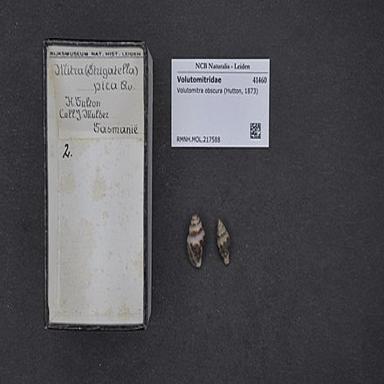 RIJKSMUSEUM NAT. HIST. LEIDEN
Mitra (Strigatella)
pica Rv.
H. Fulton
Coll. J. Mulder
Tasmanië
2.
NCB Naturalis - Leiden
Volutomitridae 41460
Volutomitra obscura (Hutton, 1873)
RMNH.MOL.217588